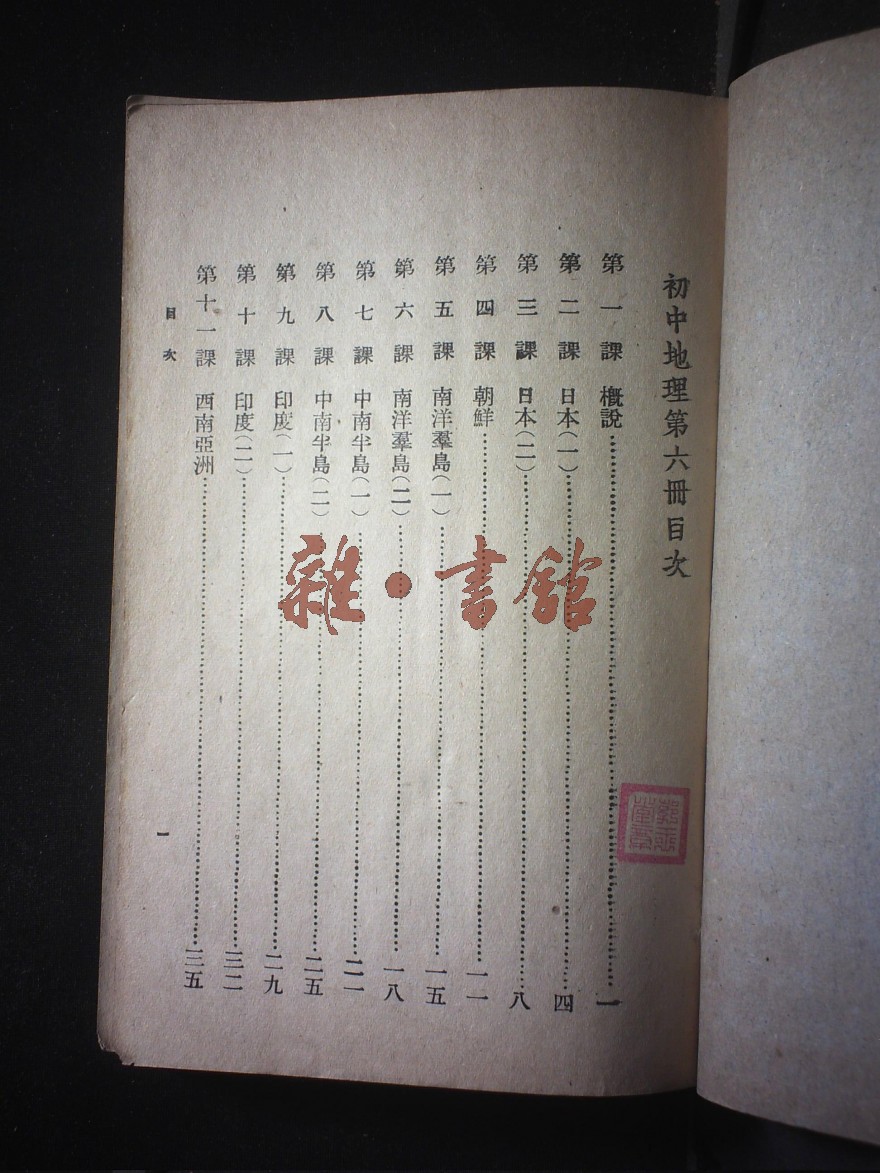 初中地理第六冊目次
第一課 概説……一
第二課 日本(一)……四
第三課 日本(二)……八
第四課 朝鮮……一一
第五課 南洋羣島(一)……一五
第六課 南洋羣島(二)……一八
第七課 中南半島(一)……二一
第八課 中南半島(二)……二五
第九課 印度(一)……二九
第十課 印度(二)……三二
第十一課 西南亞洲……三五
目次
一
雜·書館